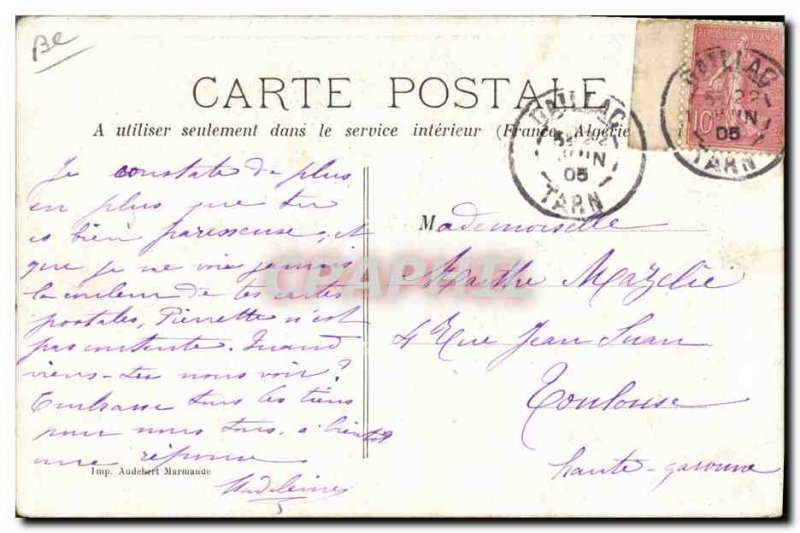 Be
CARTE POSTALE
A utiliser seulement dans le service intérieur (France, Algérie
REPUBLIQUE FRANCAISE
10
GAILLAC
JUIN
05
TARN
GAILLAC
22
JUIN
05
TARN
Je constate de plus
en plus que tu
es bien paresseuse, et
que je ne vois jamais
la couleur de tes cartes
postales, Pierrette n'est
pas contente. Quand
viens-tu nous voir?
Embrasse tous les tiens
pour nous tous. à bientôt
une réponse
Madeleine
Mademoiselle
Marthe Mazelié
4 Rue Jean Suau
Toulouse
haute-garonne
Imp. Audebert Marmande
CPAPHIL